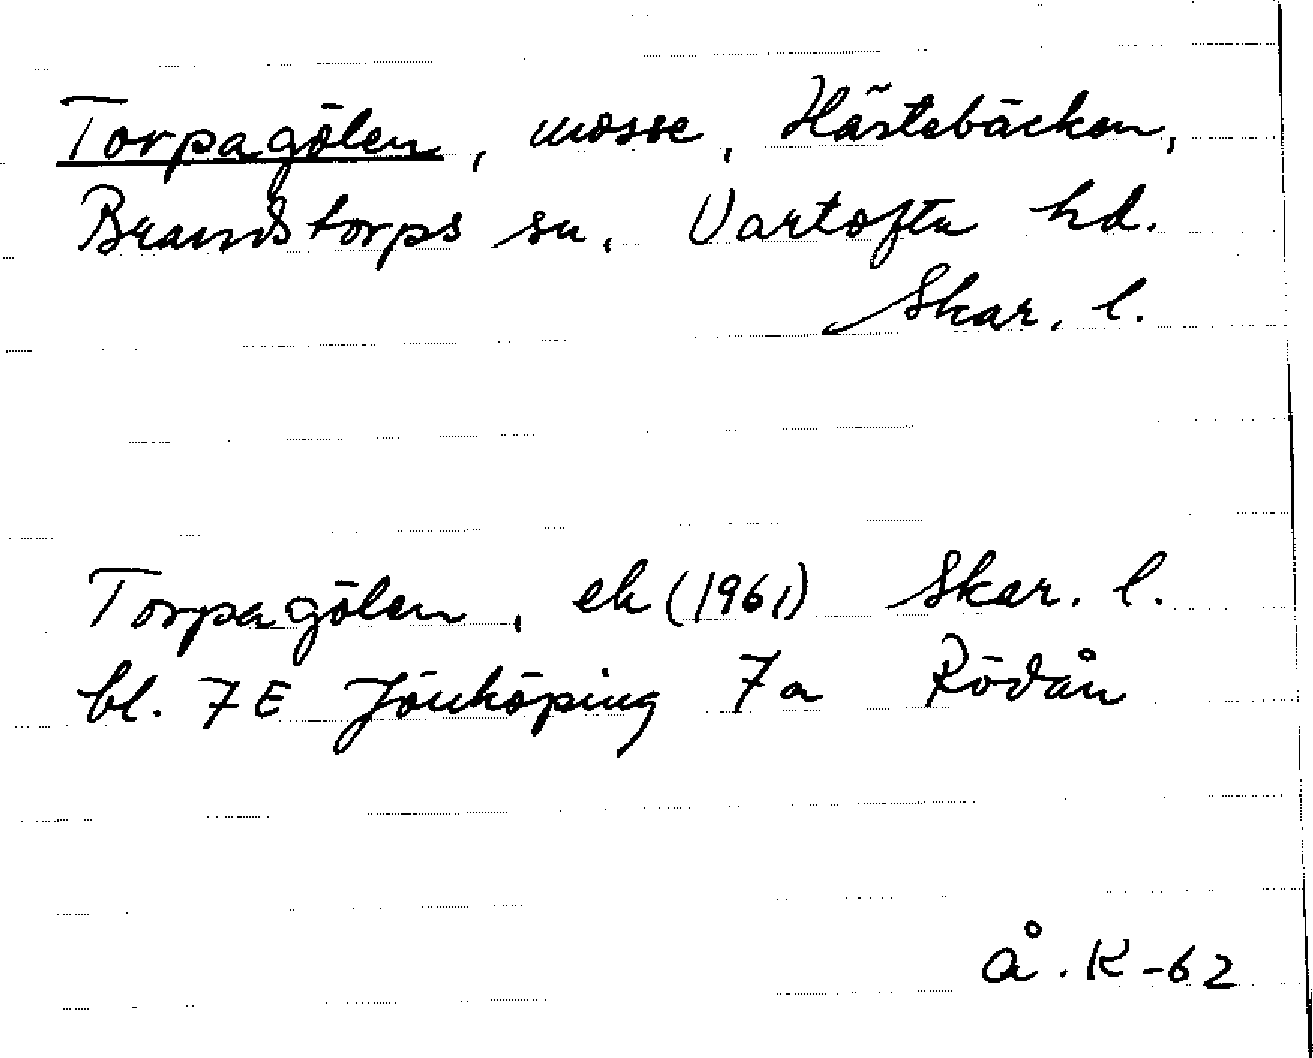 Torpagölen, mosse, Hästebäcken,
Brandstorps sn. Vartofta hd.
Skar. l.
Torpagölen, ek (1961) Skar. l.
bl. 7E Jönköping 7a Rödån
Å.K-62